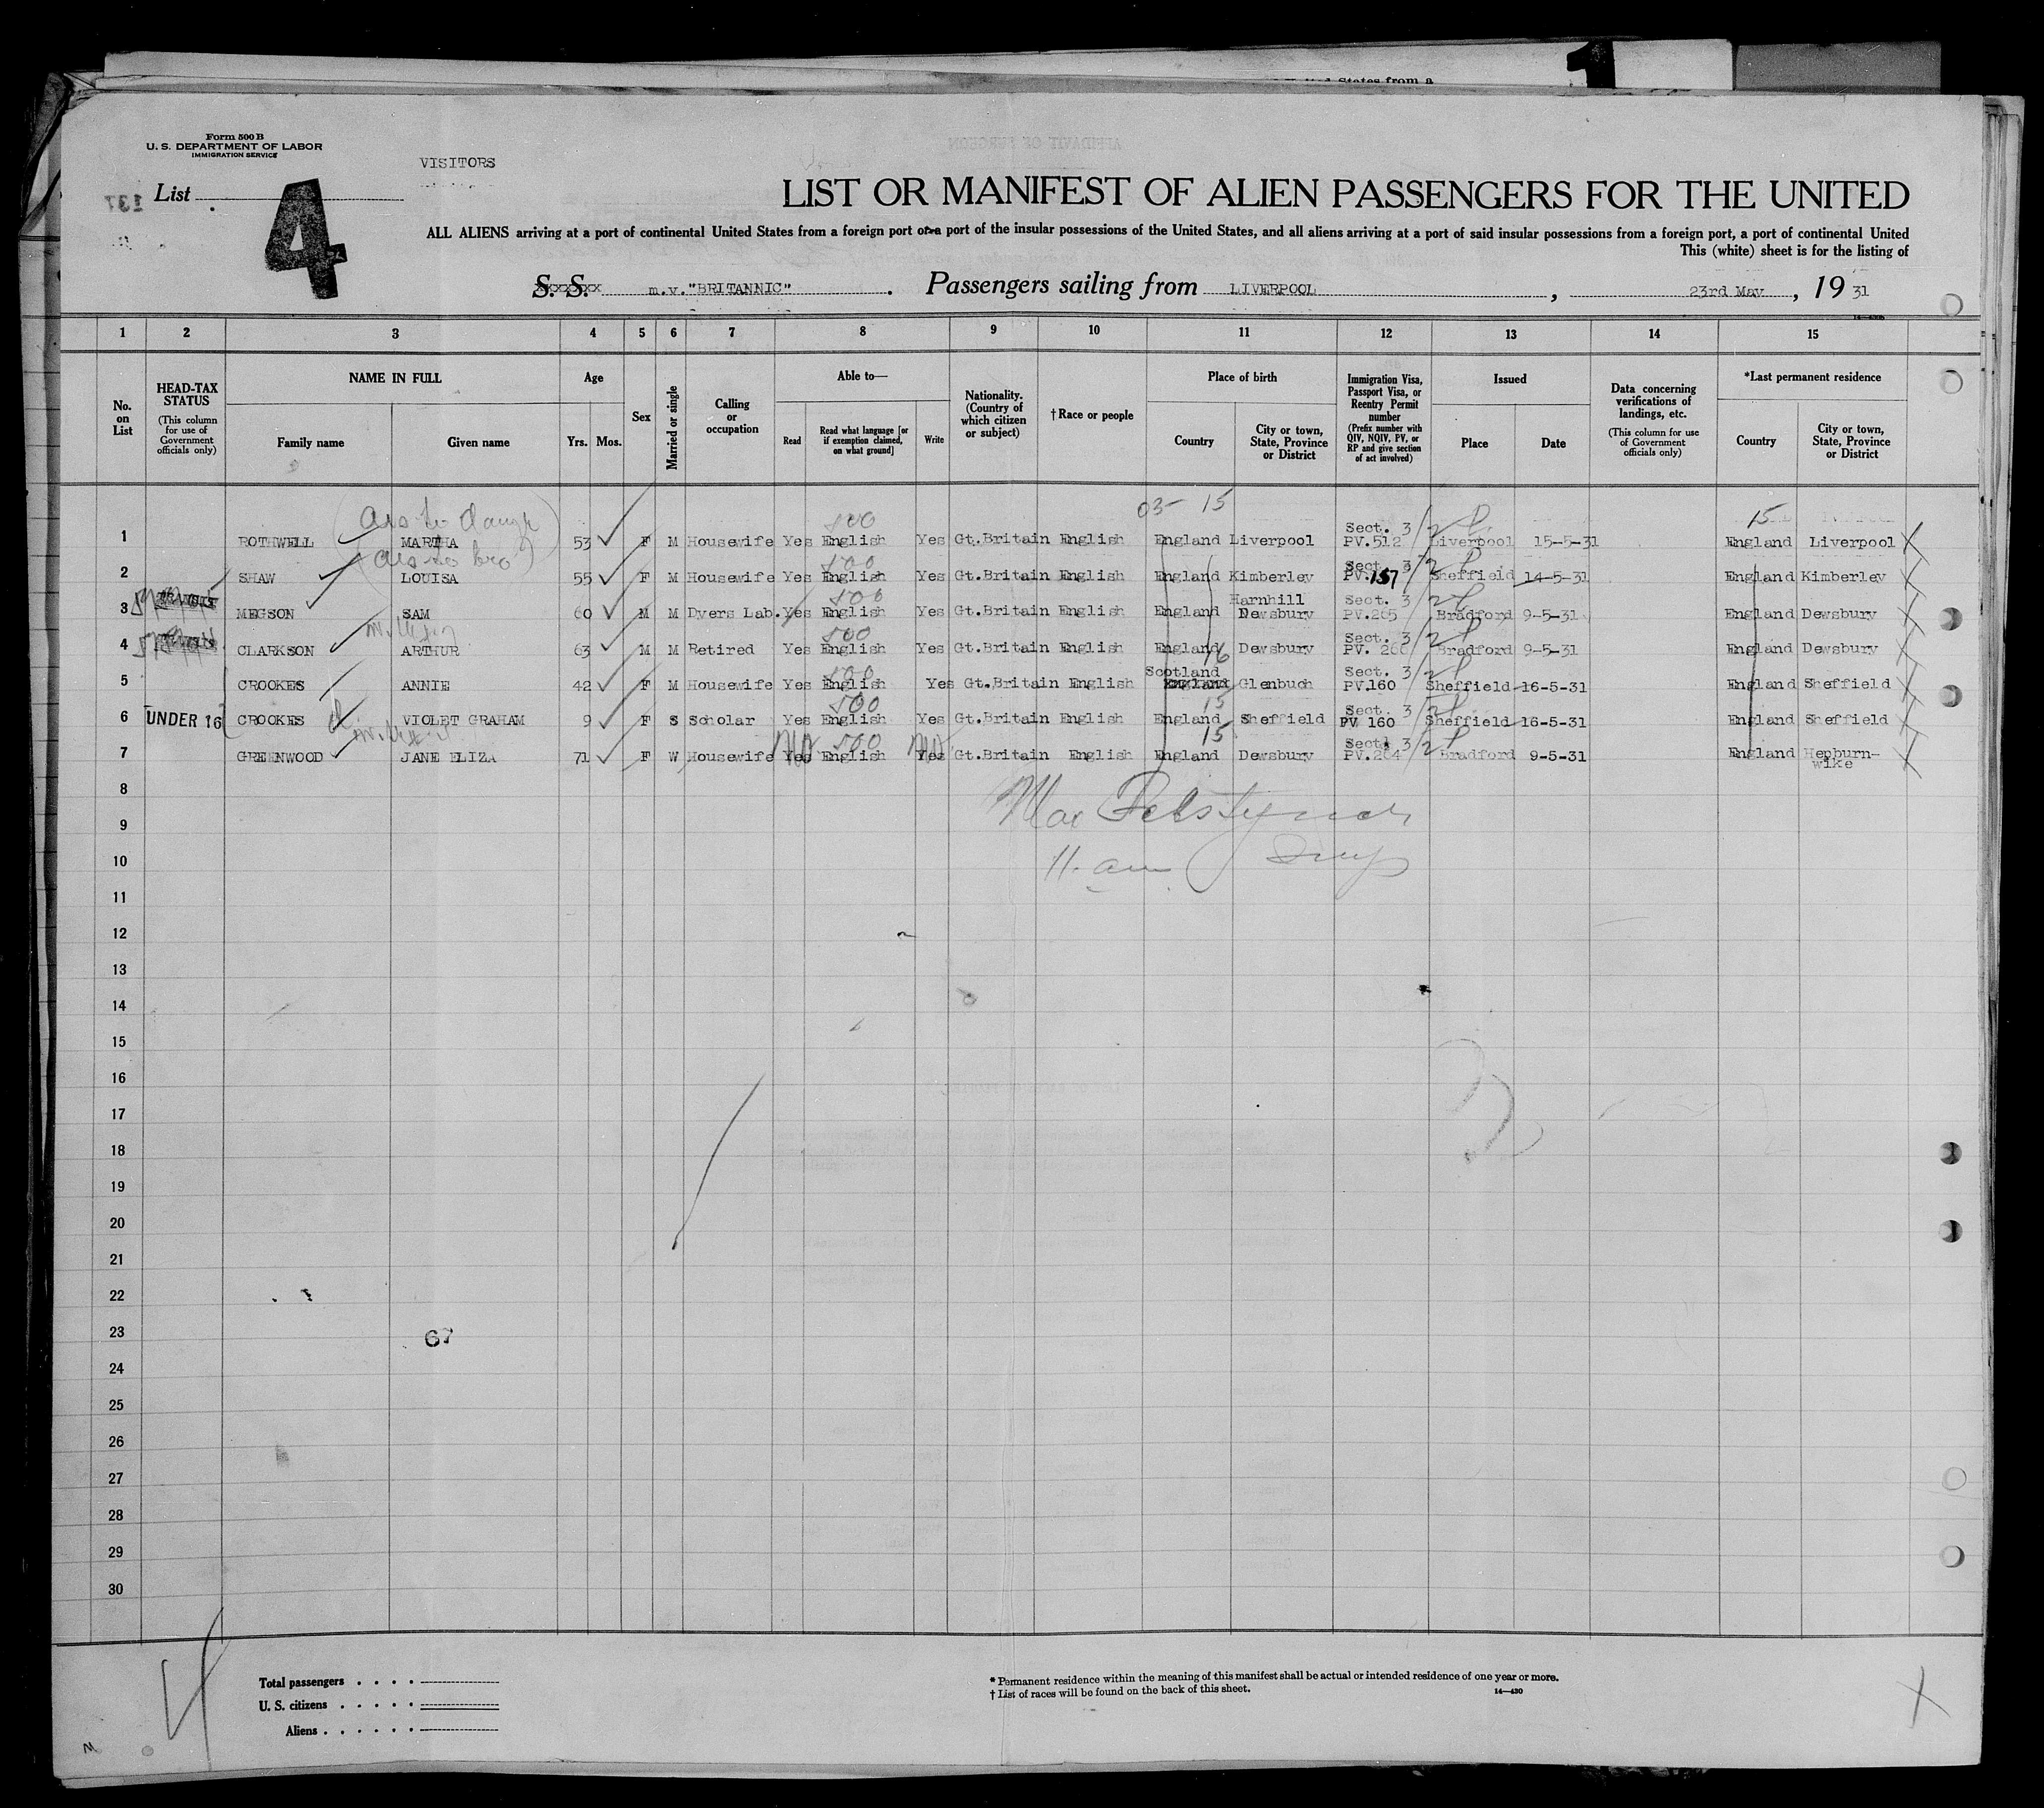 1
United States from a
Form 500 B
U. S. DEPARTMENT OF LABOR
IMMIGRATION SERVICE
VISITORS
List
4
137
LIST OR MANIFEST OF ALIEN PASSENGERS FOR THE UNITED
ALL ALIENS arriving at a port of continental United States from a foreign port or a port of the insular possessions of the United States, and all aliens arriving at a port of said insular possessions from a foreign port, a port of continental United
This (white) sheet is for the listing of
S. S. m.v."BRITANNIC". Passengers sailing from LIVERPOOL, 23rd May, 19 31
1 2 3 4 5 6 7 8 9 10 11 12 13 14 15
No. on List
HEAD-TAX STATUS
(This column for use of Government officials only)
NAME IN FULL
Family name Given name
Age
Yrs. Mos.
Sex
Married or single
Calling or occupation
Able to—
Read
Read what language [or if exemption claimed, on what ground]
Write
Nationality. (Country of which citizen or subject)
†Race or people
Place of birth
Country
City or town, State, Province or District
Immigration Visa, Passport Visa, or Reentry Permit number
(Prefix number with QIV, NQIV, PV, or RP and give section of act involved)
Issued
Place Date
Data concerning verifications of landings, etc.
(This column for use of Government officials only)
*Last permanent residence
Country
City or town, State, Province or District
03- 15 15
500
1 ROTHWELL MARTHA 53 F M Housewife Yes English Yes Gt.Britain English England Liverpool Sect. 3 PV.512 Liverpool 15-5-31 England Liverpool
500
2 SHAW LOUISA 55 F M Housewife Yes English Yes Gt.Britain English England Kimberley Sect. 3 PV.157 Sheffield 14-5-31 England Kimberley
500
3 MEGSON SAM 60 M M Dyers Lab. Yes English Yes Gt.Britain English England Harnhill Dewsbury Sect. 3 PV.265 Bradford 9-5-31 England Dewsbury
500
4 CLARKSON ARTHUR 63 M M Retired Yes English Yes Gt.Britain English England Dewsbury Sect. 3 PV. 266 Bradford 9-5-31 England Dewsbury
500 16
5 CROOKES ANNIE 42 F M Housewife Yes English Yes Gt.Britain English Scotland Glenbuch Sect. 3 PV.160 Sheffield 16-5-31 England Sheffield
500 15
6 UNDER 16 CROOKES VIOLET GRAHAM 9 F S Scholar Yes English Yes Gt.Britain English England Sheffield Sect. 3 PV 160 Sheffield 16-5-31 England Sheffield
500 15
7 GREENWOOD JANE ELIZA 71 F W Housewife Yes English Yes Gt.Britain English England Dewsbury Sect. 3 PV.264 Bradford 9-5-31 England Hepburn-wike
8
9
10
11 am
11
12
13
14
15
16
17
18
19
20
21
22
23
67
24
25
26
27
28
29
30
Total passengers
U. S. citizens
Aliens
* Permanent residence within the meaning of this manifest shall be actual or intended residence of one year or more.
† List of races will be found on the back of this sheet.
14—430